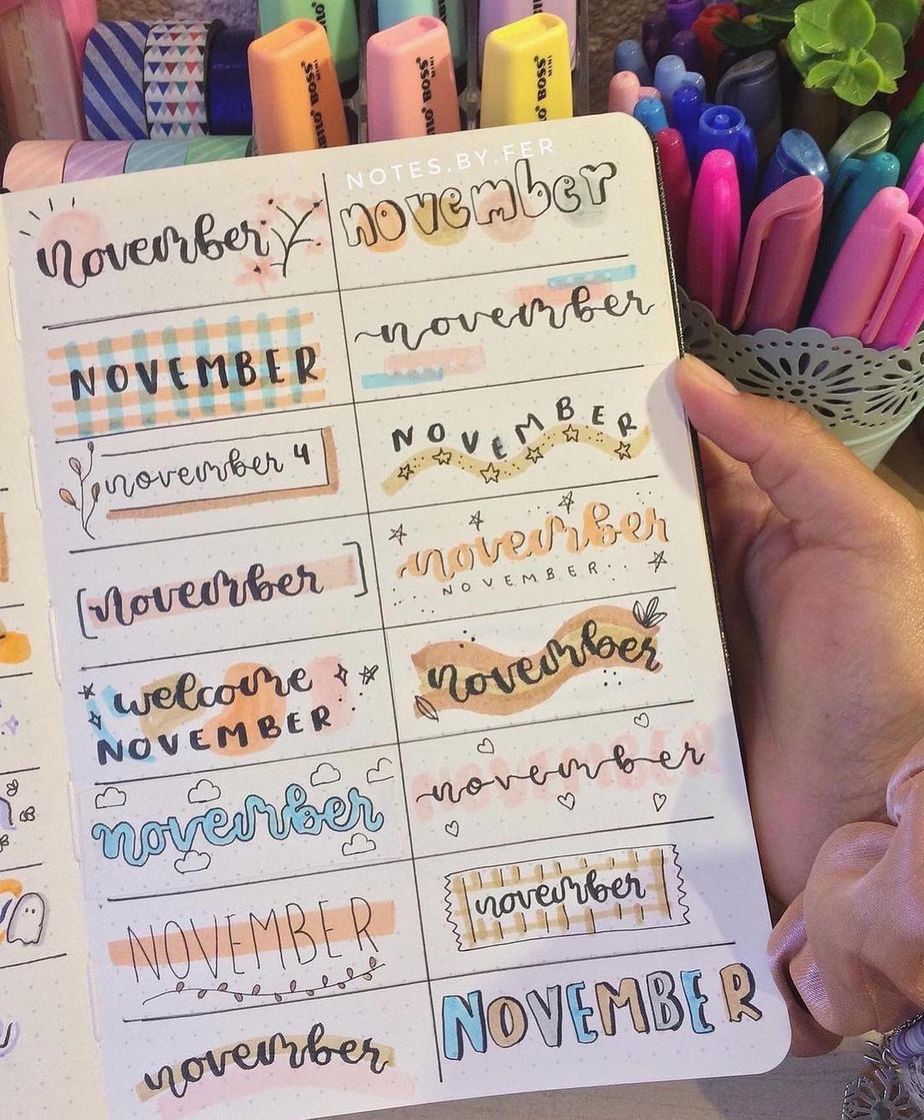 BOSS
MINI
BOSS
MINI
BOSS
NOTES.BY.FER
november
november
NOVEMBER
november
november 4
NOVEMBER
november
november
NOVEMBER
welcome
NOVEMBER
november
november
november
NOVEMBER
november
november
NOVEMBER